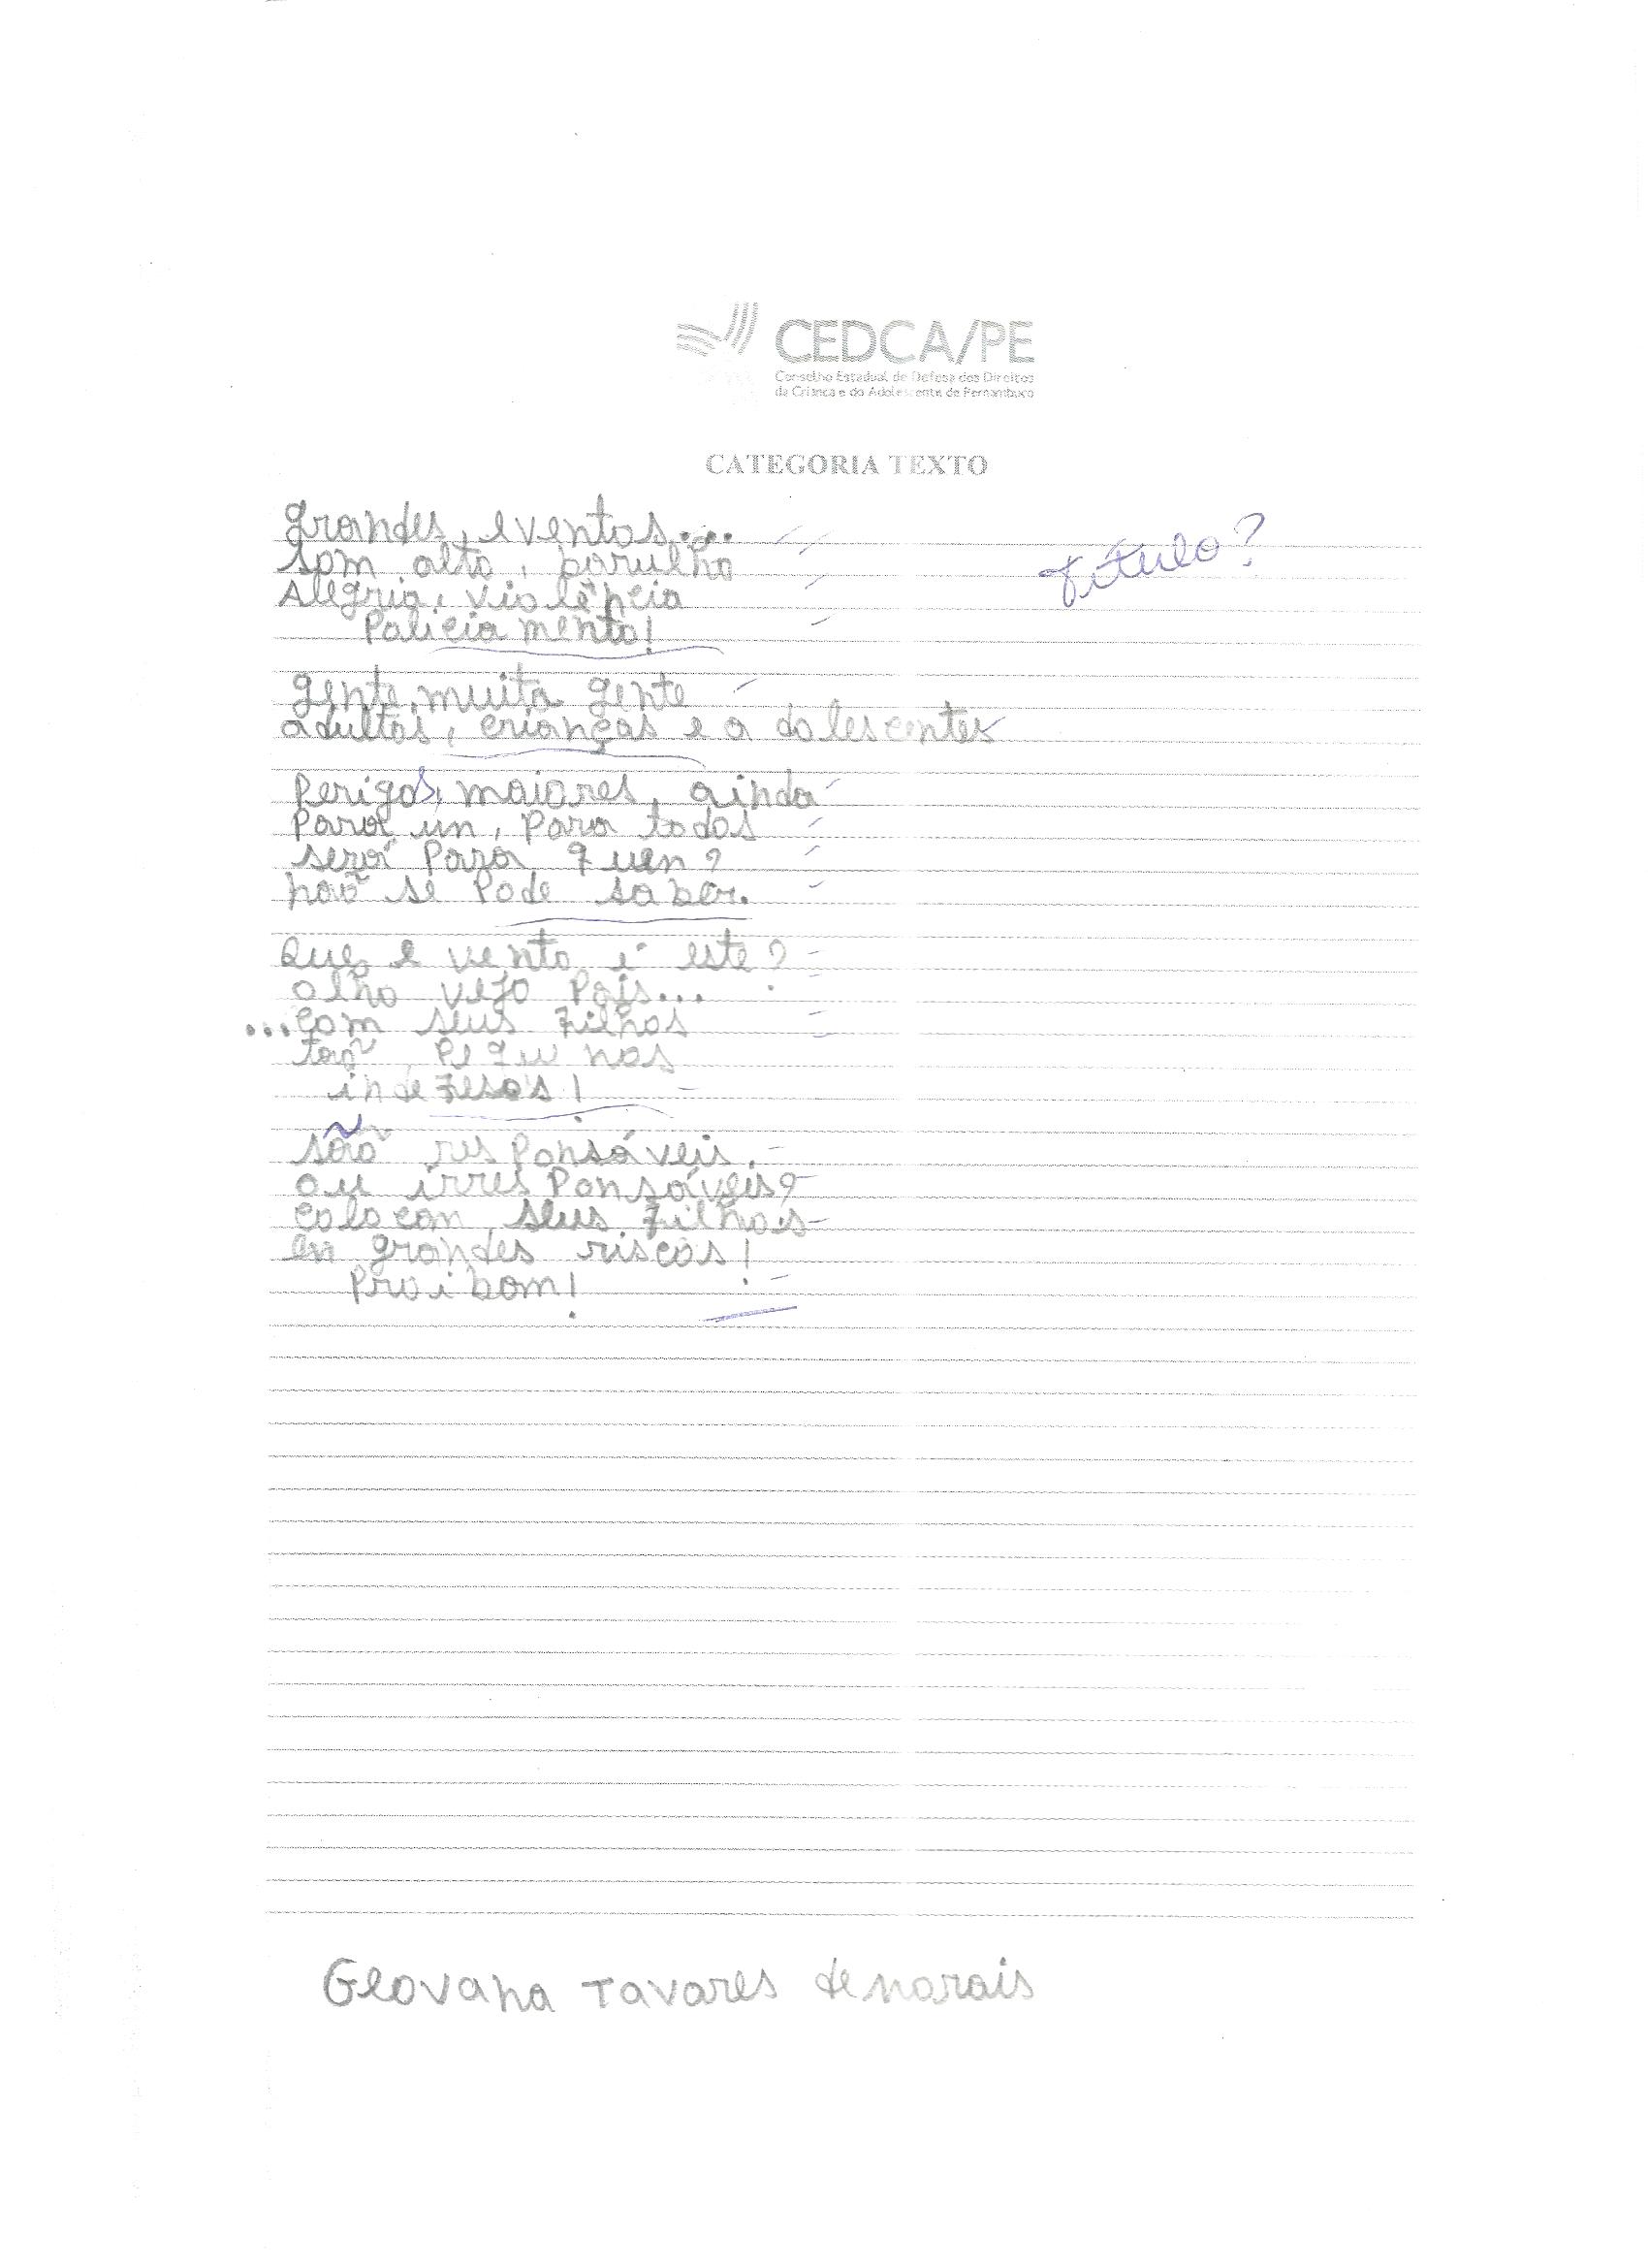 CEDCA/PE
Conselho Estadual de Defesa dos Direitos
da Criança e do Adolescente de Pernambuco
CATEGORIA TEXTO
grandes, eventos....
som alto, barulho
Alegria, violência
Policia mento!
Título?
gente, muita gente
adultos, crianças e a dolescentes
Perigos, maiores, ainda
Para un, Para todos
será Para quen?
não se Pode saber.
Que e vento é este?
olho vejo Pais...
...com seus filhos
tão Pequenos
indefesos!
são res Ponsáveis,
ou irres Ponsáveis?
colocan seus filhos
en grandes riscos!
Proi bam!
Geovana Tavares de norais